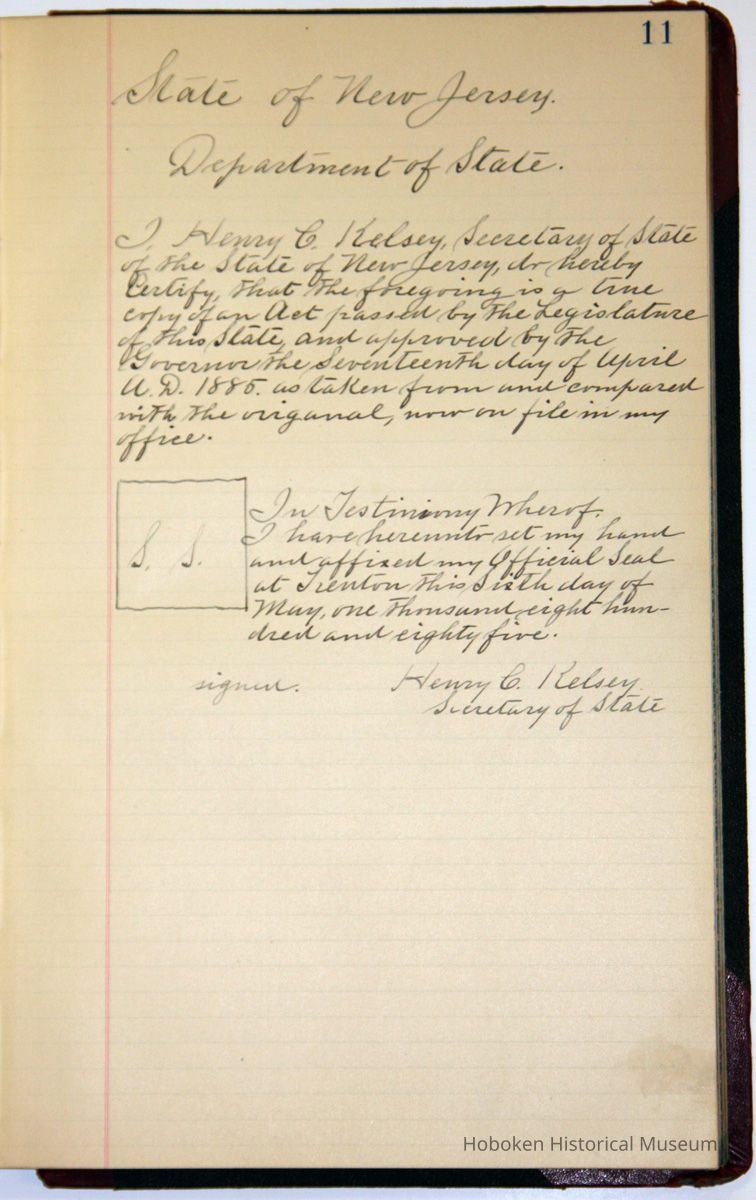 11
State of New Jersey.
Department of State.
I, Henry C. Kelsey, Secretary of State
of the State of New Jersey, do hereby
Certify, that the foregoing is a true
copy of an Act passed by the Legislature
of this State, and approved by the
Governor the Seventeenth day of April
A.D. 1885. as taken from and compared
with the origanal, now on file in my
office.
In Testimony Wherof.
I have hereunto set my hand
and affixed my Official Seal
at Trenton this Sixth day of
May, one thousand eight hun-
dred and eighty five.
S. S.
signed. Henry C. Kelsey
Secretary of State
Hoboken Historical Museum